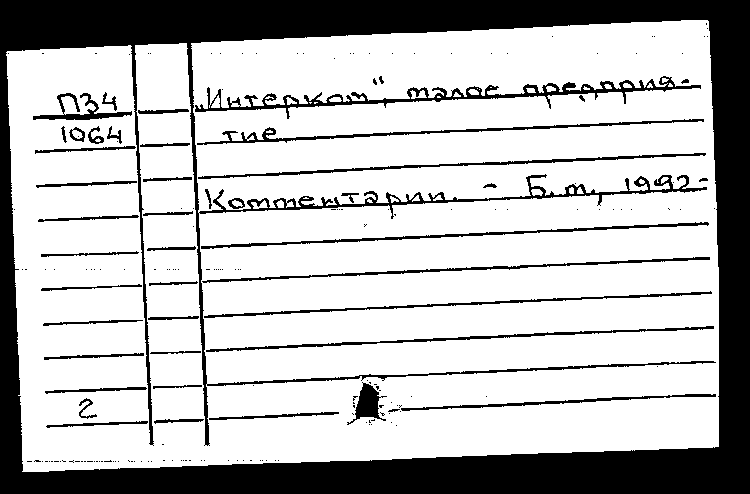 П34
1064
„Интерком“, малое предприя-
тие
Комментарии. - Б.м., 1992-
2